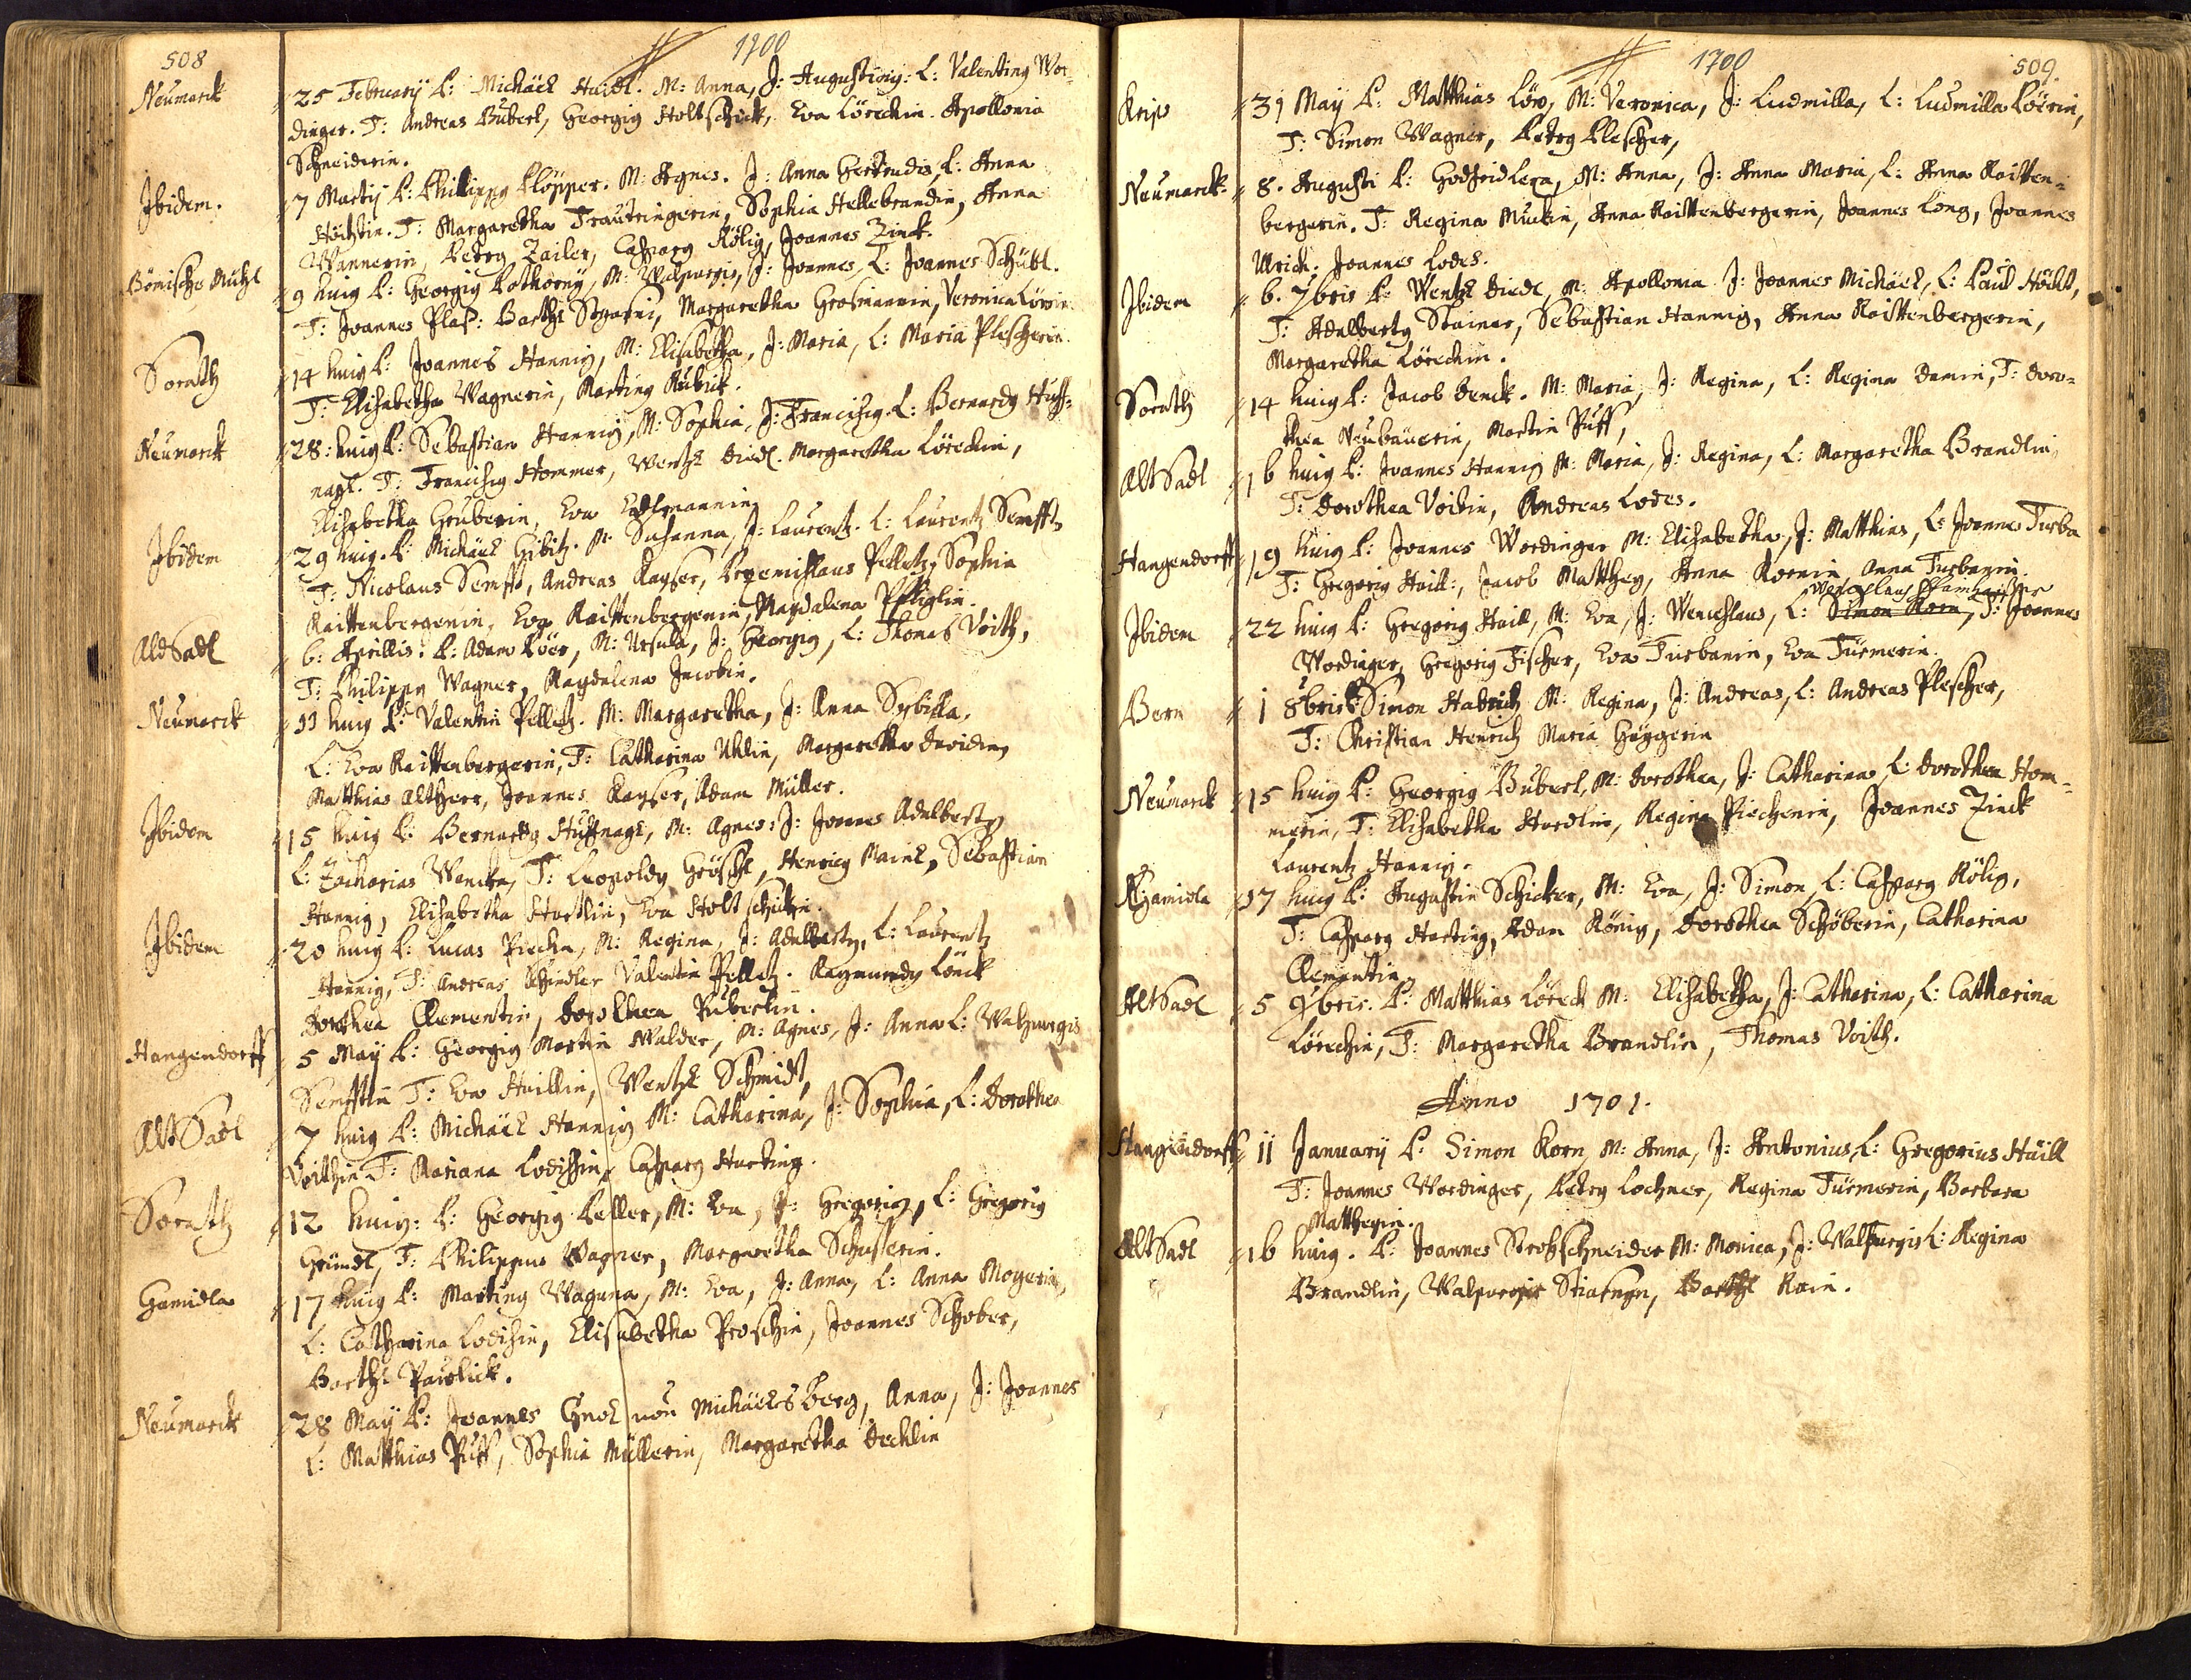 508
1700
Neumarck 25 February P: Michäel Haidl. M: Anna, J: Augustinq: L: Valentinq Wor-
dinger. T: Andreas Buberl, Georgiq Holtschick, Eva Lörechin. Apollonia
Schneiderin.
Ibidem. 7 Martij P: Philippq Klöpper. M: Agnes. J: Anna Gertrudis, L: Anna
T: Margaretha Trautringerin, Sophia Hellebrandin, Anna
Wannerin, Petrq Zailer, Casparq Rölig, Joannes Zinck.
Bömische Mühl 9 huiq P: Georgiq M: Walpurgis, J: Joannes, L: Joannes Schübl.
T: Joannes Plas: Barthl Margaretha Grosmannin, Veronica Lörin
Sorath 14 huiq P: Joannes Hannig, M: Elisabetha, J: Maria, L: Maria Plescherin.
T: Elisabetha Wagnerin, Martinq Kubick.
Neumarck 28: huiq P: Sebastian Hannig, M: Sophia, J: Franciscq. L: Bernardq Huff-
nagl. T: Franciscq Hommer, Wentzl Diedl. Margaretha Lörechin,
Elisabetha Gruberin, Eva Edlmannin
Ibidem 29 huiq. P: Michäel Gibitz. M: Susanna, J: Laurentz. L: Laurentz Semfft,
T: Nicolaus Semfft, Andreas Kayser, Przemislaus Pelletz, Sophia
Raittenbergerin, Eva Raittenbergerin, Magdalena Pfliglin.
AltSadl 6: Aprillis. P: Adam Löer, M: Ursula, J: Georgiq, L: Thomas Voith,
T: Philippq Wagner, Magdalena Jacobin.
Neumarck 11 huiq P: Valentin Pelletz. M: Margaretha, J: Anna Sybilla,
L: Eva Raittenbergerin, T: Catharina Uhlin, Margaretha Davidin,
Matthias Altherr, Joannes Kayser, Adam Müller.
Ibidem 15 huiq P: Bernardq Huffnagl, M: Agnes: J: Joannes Adelbertq
L: Zacharias Wancka, T: Leopoldq Gröschl, Henricq Mainl, Sebastian
Hannig, Elisabetha Hartlin, Eva Holtschickin.
Ibidem 20 huiq P: Lucas Piecha, M: Regina, J: Adelbertq, L: Laurentz
Hannig, T: Andreas Schindler Valentin Pelletz. Raymundq Lönck
Dorothea Clementin, Dorothea Puberlin.
Hangendorff 5 May P: Georgiq Martin Walder, M: Agnes, J: Anna L: Walpurgis
Semfftin T: Eva Haillin, Wentzl Schmidt,
AltSadl 7 huiq P: Michäel Hannig M: Catharina, J: Sophia, L: Dorothea
Voithin T: Mariana Lodissin, Casparq Hartinq.
Sorath 12 huiq: P: Georgiq Peller, M: Eva, J: Gregoriq, L: Gregoriq
Gründl, T: Philippus Wagner, Margaretha Schusterin.
Gamidla 17 huiq P: Martinq Waguna, M: Eva, J: Anna, L: Anna Mayerin,
L: Catharina Lodisin, Elisabetha Proschin, Joannes Schober,
Barthl Pawlick.
Neumarck 28 May P: Joannes von Michäelsberg, Anna, J: Joannes
L: Matthias Puff, Sophia Müllerin, Margaretha Dechlin
1700
509.
Krips 31 May P: Matthias Löw, M: Veronica, J: Ludmilla, L: Ludmilla Loërin,
T: Simon Wagner, Petrq Plescher,
Neumarck 8. Augusti P: Godfrid Leza, M: Anna, J: Anna Maria, L: Anna Raitten-
bergerin. T: Regina Muckin, Anna Raittenbergerin, Joannes Long, Joannes
Ulrich. Joannes Lodes.
Ibidem 6. 7bris P: Wentzl Diedl, M: Apollonia J: Joannes Michäel, L: Paul Höchl,
T: Adelbertq Stainer, Sebastian Hannig, Anna Raittenbergerin,
Margaretha Lörechin.
Sorath 14 huiq P: Jacob Denck. M: Maria, J: Regina, L: Regina Damin, T: Doro-
thea Neubauerin, Martin Puff,
AltSadl 16 huiq P: Joannes Hannig M: Maria, J: Regina, L: Margaretha Brandlin,
T: Dorothea Voitin, Andreas Lodes.
Hangendorff 19 huiq P: Joannes Wordinger M: Elisabetha, J: Matthias, L: Joannes Turba
T: Gregoriq Haill:, Jacob Matthey, Anna Kornin, Anna Turbanin.
Wenceslaus
Ibidem 22 huiq P: Gregoriq Haill, M: Eva, J: Wenceslaus, L: Simon Korn, T: Joannes
Wordinger, Gregoriq Fischer, Eva Turbanin, Eva Türmerin.
Bern 1 8bris P: Simon Habrich M: Regina, J: Andreas, L: Andreas Plescher,
T: Christian Henrich Maria Heggerin
Neumarck 15 huiq P: Georgiq Buberl, M: Dorothea, J: Catharina L: Dorothea Hom-
merin, T: Elisabetha Hardlin, Regina Piechenin, Joannes Zinck
Laurentz Hannig.
Kzamidla 17 huiq P: Augustin Schicker, M: Eva, J: Simon, L: Casparq Rölig,
T: Casparq Hartinq, Adam König, Dorothea Schöberin, Catharina
Clementin.
AltSadl 5 9bris. P: Matthias Löreck M: Elisabetha, J: Catharina, L: Catharina
Lörechin, T: Margaretha Brandlin, Thomas Voith.
Anno 1701.
Hangendorff 11 January P: Simon Korn, M: Anna, J: Antonius, L: Gregorius Haill
T: Joannes Wordinger, Petrq Lochner, Regina Türmerin, Barbara
Mattheyin.
AltSadl 16 huiq. P: Joannes Strohschneider M: Monica, J: Walpurgis L: Regina
Brandlin, Walpurgis Stiasnyn, Barthl Rain.